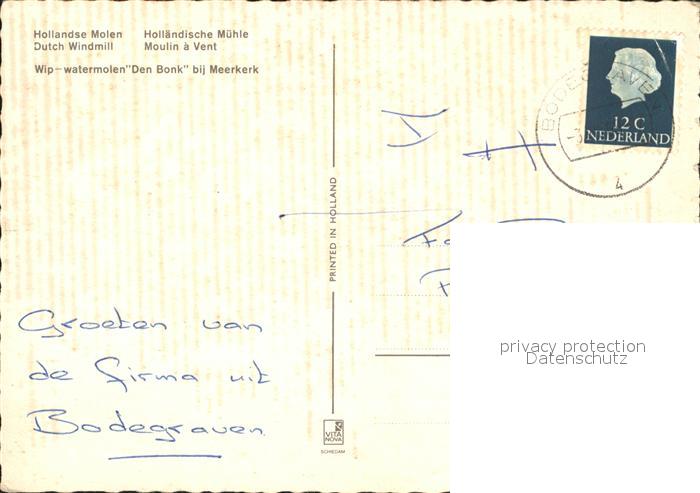 Hollandse Molen Holländische Mühle
Dutch Windmill Moulin à Vent
Wip-watermolen"Den Bonk" bij Meerkerk
12 C
NEDERLAND
4
PRINTED IN HOLLAND
Groeten van
de firma uit
Bodegraven
privacy protection
Datenschutz
VITA
NOVA
SCHIEDAM